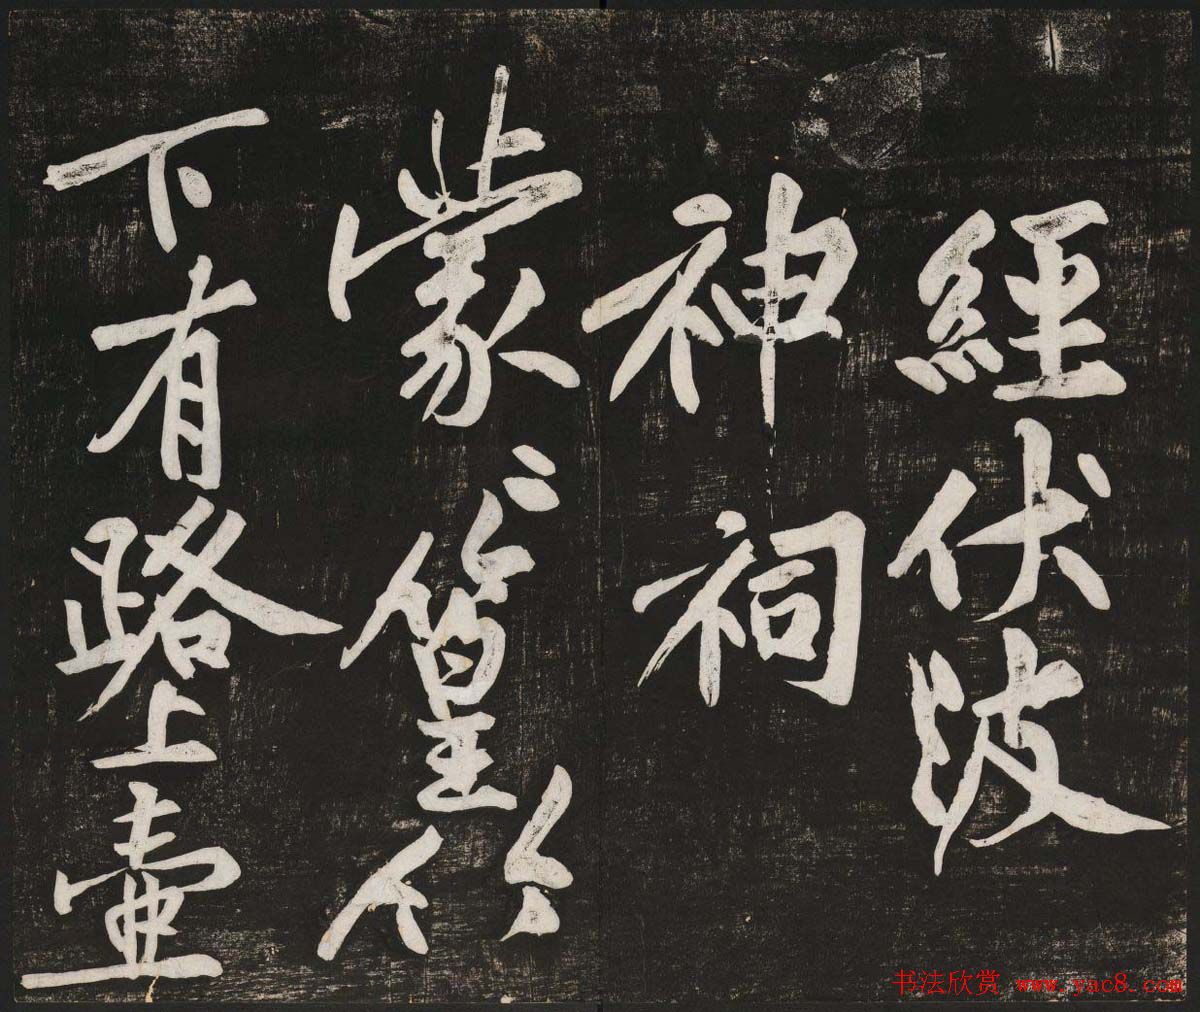 經伏波
神祠
蒙〻篁竹
下有路上壺
书法欣赏 www.yac8.com